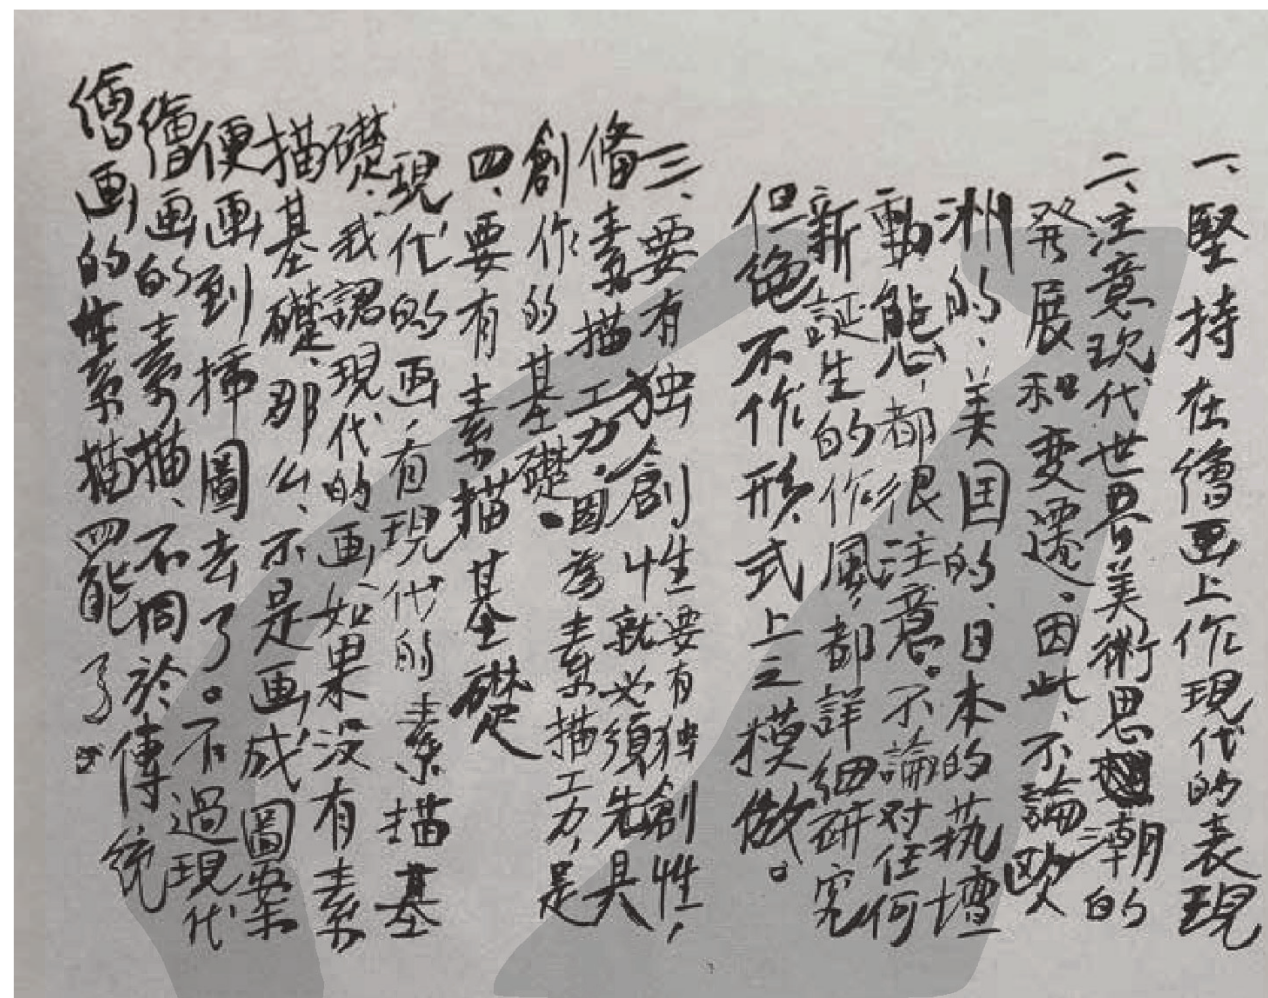 一、堅持在繪画上作現代的表現
二、注意现代世界美術思潮的
発展和变遷。因此、不論欧
洲的、美国的、日本的執壇
動態，都很注意。不論对任何
新誕生的作風，都詳細研究
但絶不作形式上之模倣。
三、要有独創性要有独創性，
就必須先具
俻素描工力。因為素描工力，是
創作的基礎。
四、要有素描基礎
現代的画，有現代的素描基
礎，我認現代的画，如果没有素
描基礎、那么、不是画成圖案
便画到插圖去了。不過現代
繪画的素描、不同於傳統
繪画的性素描罷了。